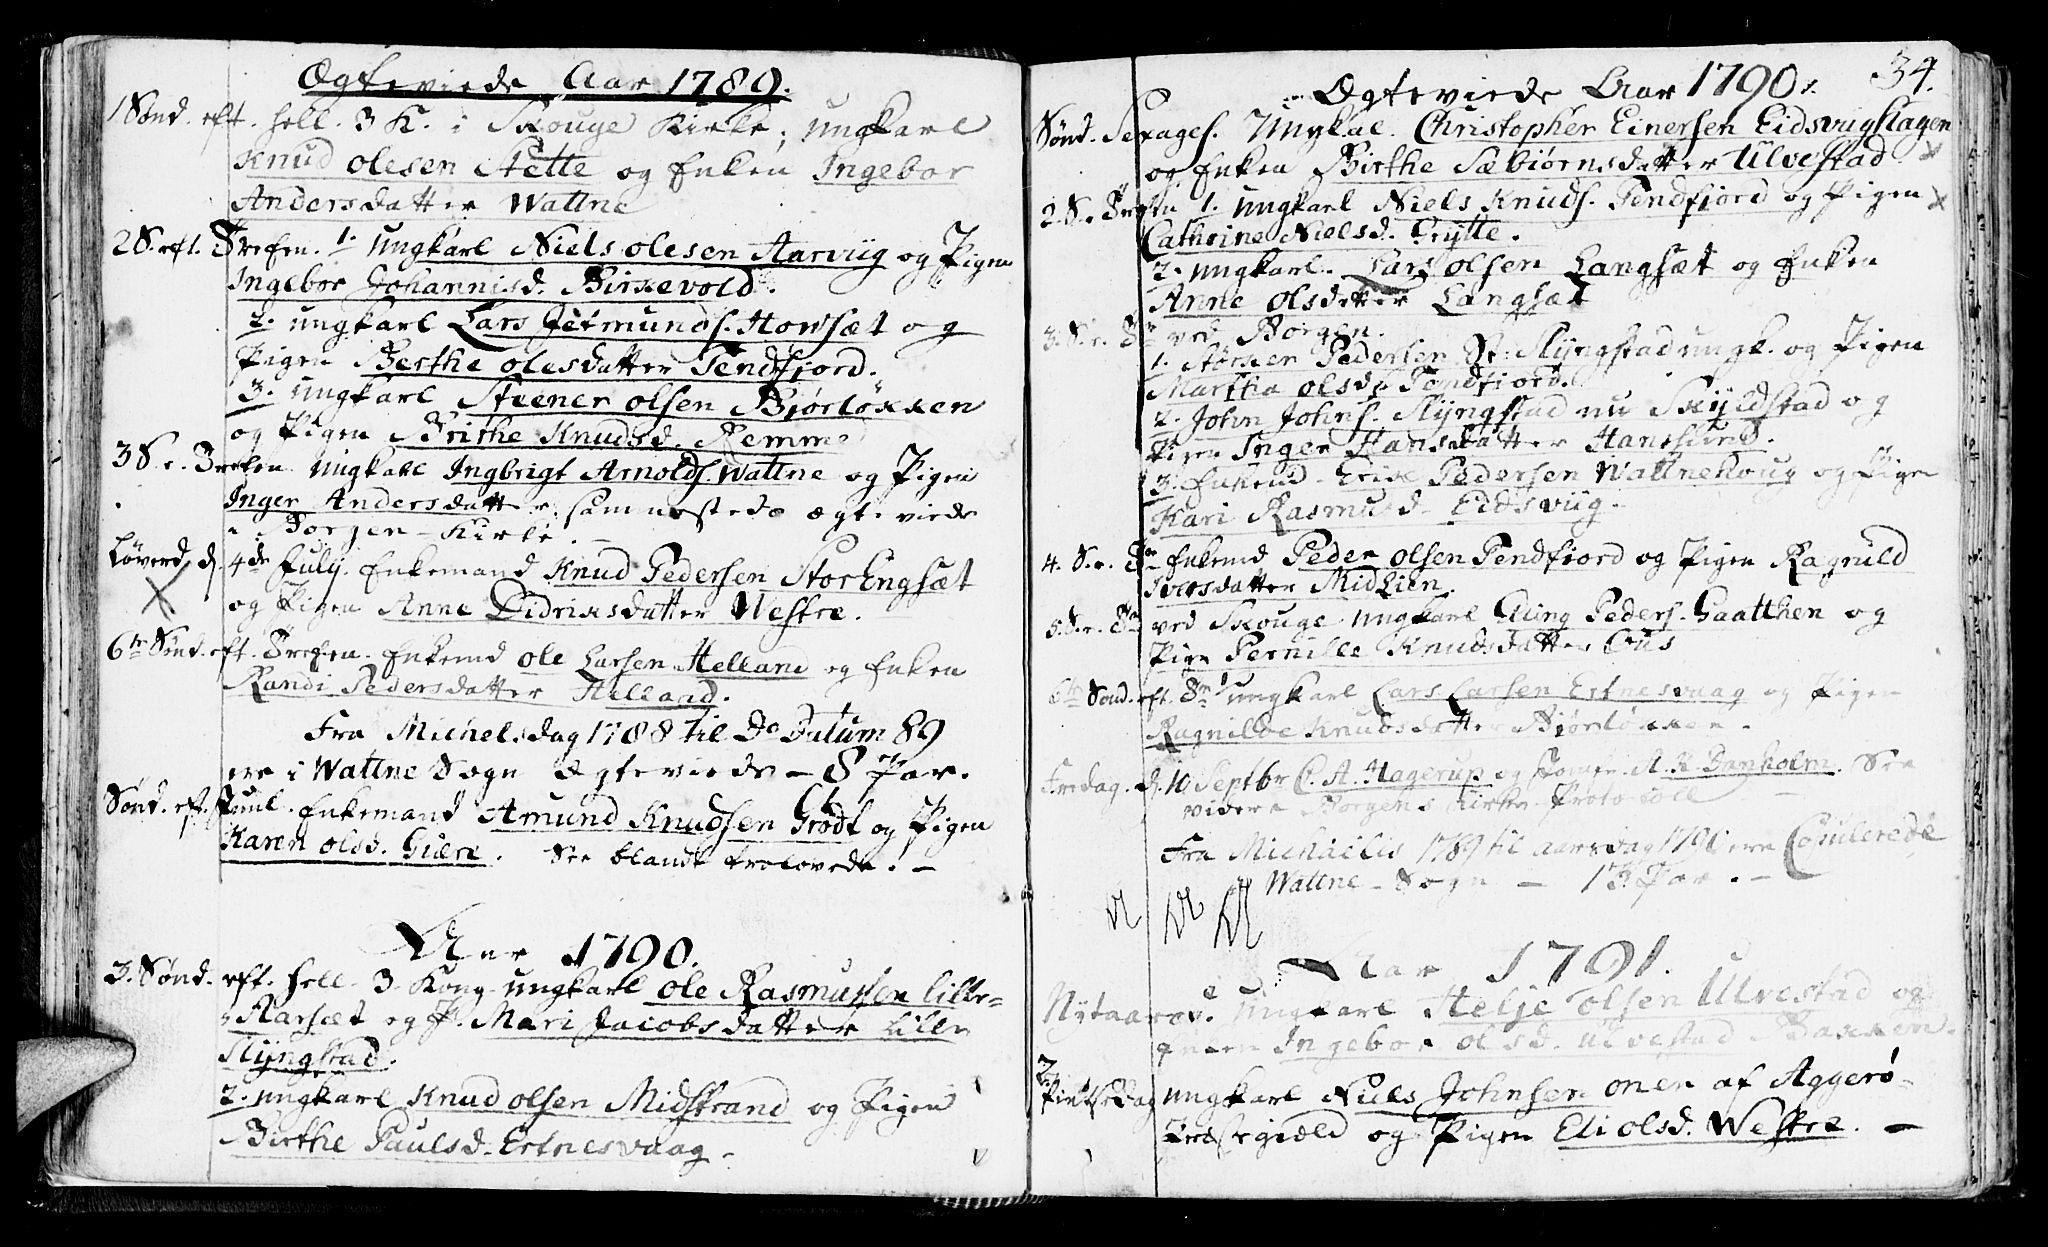 Ægteviede Aar 1789.
1 Sønd. eft. hell. 3 K. i Skouge Kirke, ungkarl
Knud olesen Stette og Enken Ingebor
Andersdatter Wattne
2 S. eft. Trefen. 1. ungkarl Niels olesen Aarviig og Pigen
Ingebor Johannisd. Birkevold.
2. ungkarl Lars Jetmunds. Howsæt og
Pigen Berthe olesdatter Tendfjord.
3. ungkarl Steener olsen Bjørløkken
og Pigen Brithe Knudsd. Remme
3 S. e. Trefen ungkarl Ingbrigt Arnolds. Wattne og Pigen
Inger Andersdatter sammesteds ægteviede
i Borgen-Kirke.
Løverd. d. 4de Julij. Enkemand Knud Pedersen StorEngsæt
og Pigen Anne Didrixsdatter Westre.
6te Sønd. eft. Trefen. Enkemd ole Larsen Helland og Enken
Randi Pedersdatter Helland.
Fra Michelsdag 1788 til Do Datum 89
ere i Wattne Sogn Ægteviede - 8 Par.
Sønd. eft. Juul. Enkemand Amund Knudsen Grødt og Pigen
Karen olsd. Giære. See blandt trolovede. -
Aar 1790.
3. Sønd. eft. hell. 3 Kong. ungkarl ole Rasmussen lille-
Aarsæt og P. Mari Jacobsdatter Lille
Slyngstad.
2. ungkarl Knud olsen Midstrand og Pigen
Birthe Paulsd. Ertnesvaag.
34.
Ægteviede Aar 1790.
Sønd. Sexages. Ungkal. Christopher Einersen Eidsviighagen
og Enken Birthe Sæbiørnsdatter Ulvestad
2. S. e. Trefn 1. ungkarl Niels Knuds. Tendfjord og Pigen
Cathrine Nielsd. Grytte.
2. ungkarl. Lars olsen Langsæt og Enken
Anne olsdatter Langsæt
3. S. e. Tr ved Borgen.
1. Pedersen St: Slyngstad ungk. og Pigen
Martha olsd. Tendfjord.
2. John Johns. Slyngstad nu Skijelstad og
Pigen Inger Hansdatter
3. Enkemd Erik Pedersen Wattnehoug og Pigen
Kari Rasmusd. Eidsviig.
4. S. e. Tr Enkemd Peder olsen Tendfjord og Pigen Ragnild
Iversdatter MidLien.
5. S. e. Tr ved Skouge ungkarl Elling Peders. Gaatthen og
Pige Pernille Knudsdatter
6te Sønd. eft. Tr ungkarl Lars Larsen Ertnesvaag og Pigen
Ragnilde Knudsdatter Bjørløkken.
Fredag. d. 10 Septbr C. A. Hagerup og Jomfr. A. K. Danholm. See
videre Borgens Kirke-Protocoll
Fra Michaelis 1789 til aarsdag 1790 ere Copulerede
Wattne-Sogn - 13 Par. -
Aar 1791.
Nytaarsd. Ungkarl Helje olsen Ulvestad og
Enken Ingebor olsd. Ulvestad Bakken.
2. Pintsedag ungkarl Niels Johnsen onen af Aggerø-
Præstegield og Pigen Eli olsd. Westre. -